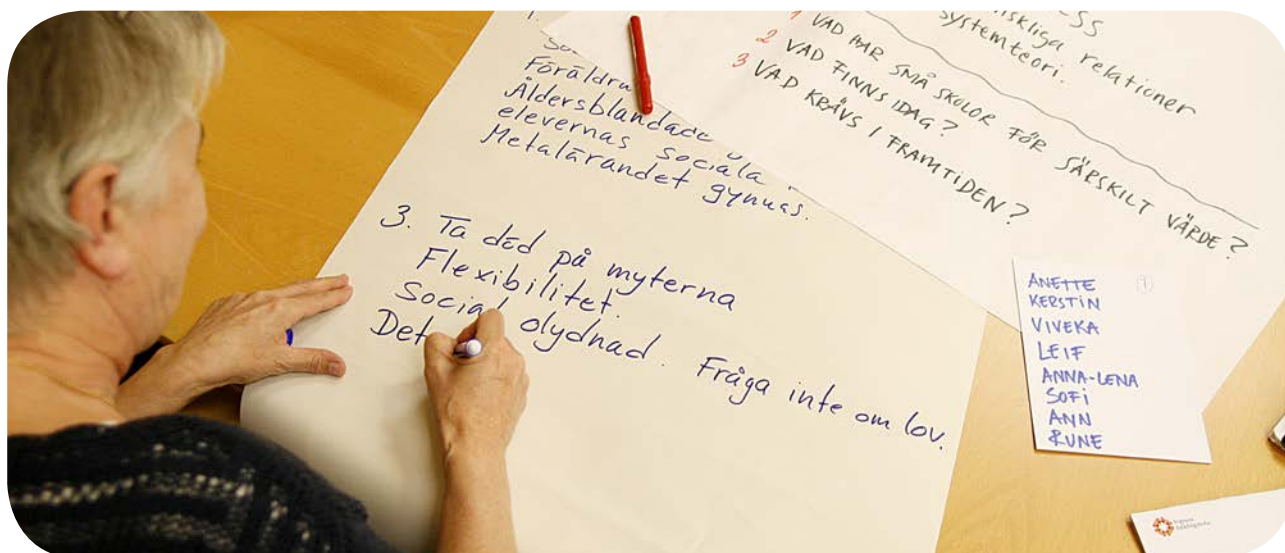 1.
Föräldra
Åldersblandade
elevernas sociala
Metalärandet gynnas.
3. Ta död på myterna
Flexibilitet.
Social olydnad. Fråga inte om lov.
Det
SS
relationer
systemteori.
1 VAD HAR SMÅ SKOLOR FÖR SÄRSKILT VÄRDE?
2 VAD FINNS IDAG?
3 VAD KRÄVS I FRAMTIDEN?
ANETTE 1
KERSTIN
VIVEKA
LEIF
ANNA-LENA
SOFI
ANN
RUNE